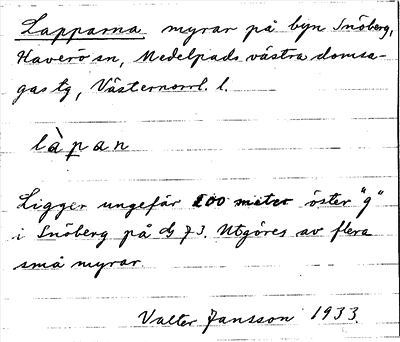 Lapparna myrar på byn Snöberg,
Haverö sn, Medelpads västra domsa-
gas tg, Västernorrl. l.
làpan
Ligger ungefär 200 meter öster "g"
i Snöberg på J3. Utgöres av flera
små myrar.
Valter Jansson 1933.